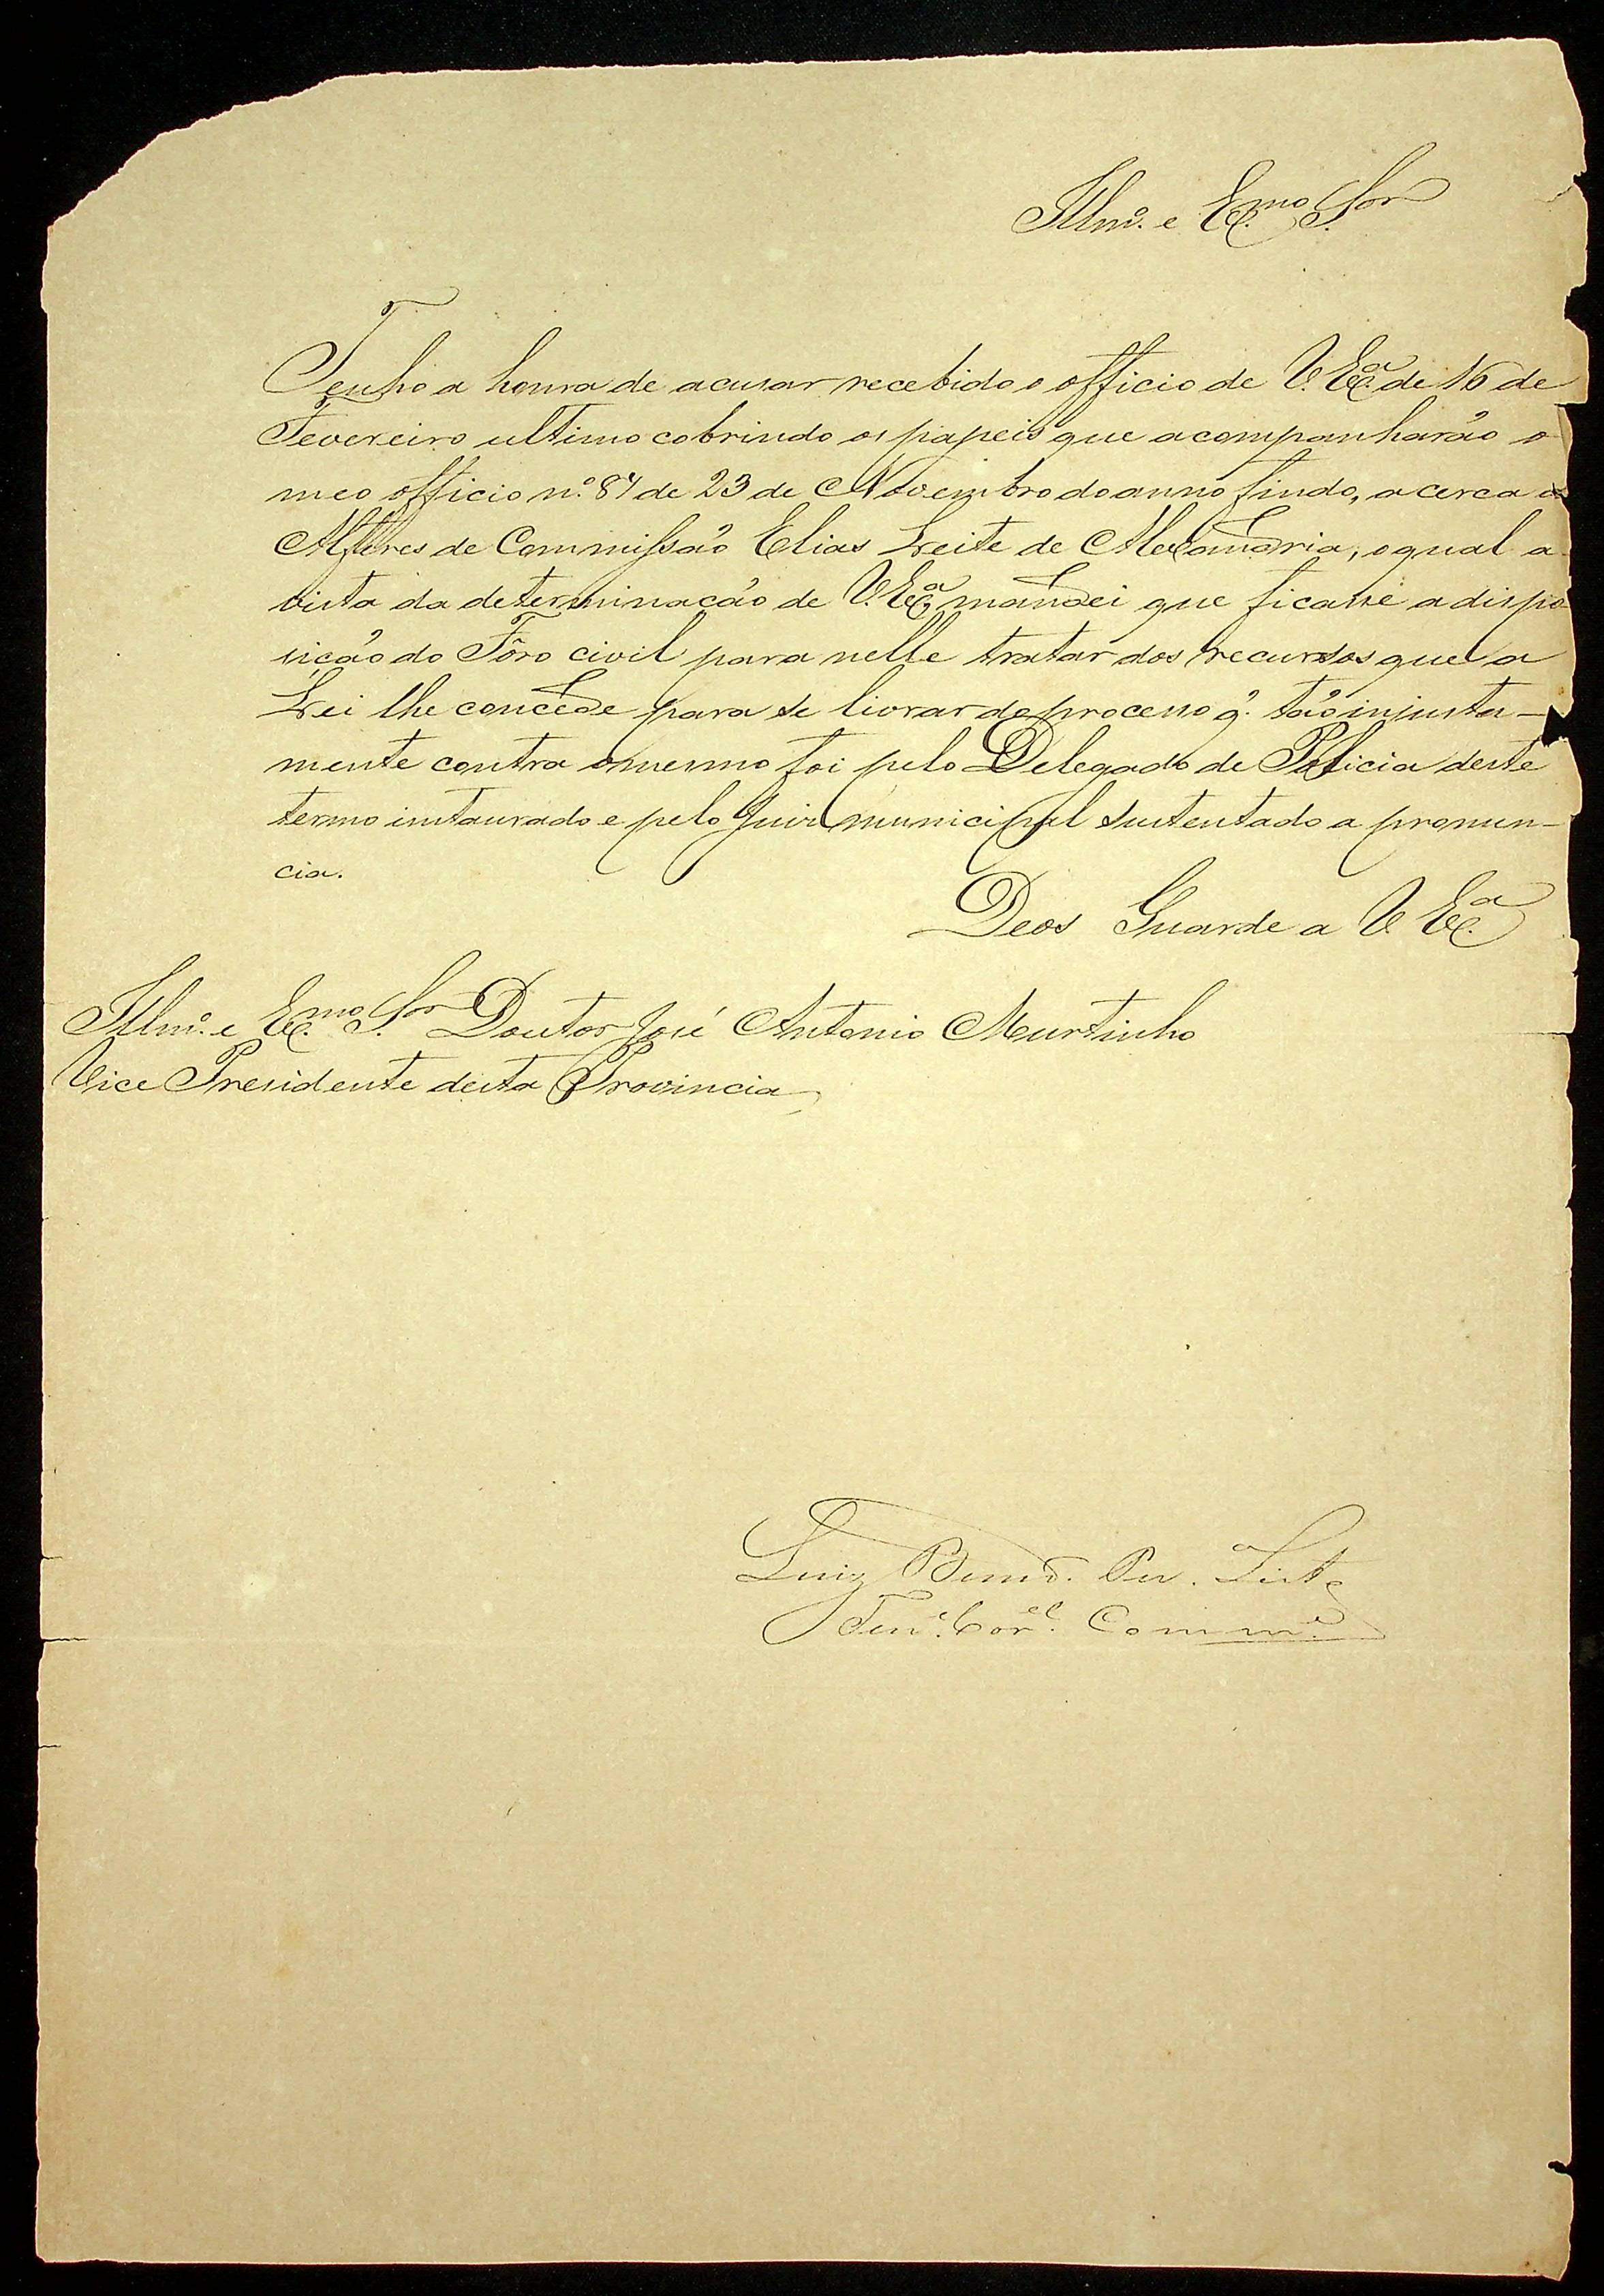 Illmº. e Ex.mo S.or
Tenho a honra de acusar recebido o officio de V. Exª. de 16 de
Fevereiro ultimo cobrindo os papeis que acompanharão o
meo officio nº. 87 de 23 de Novembro do anno findo, a cerca
Alferes de Commissão Elias Leite de Alexandria, o qual a
vista da determinação de V. Exª. mandei que ficasse a dispo
sição do Fôro civil para nelle tratar dos recursos que a
Lei lhe concede para se livrar do processo q̃. tão injusta-
mente contra o mesmo foi pelo Delegado de Policia deste
termo instaurado e pelo Juiz municipal sustentado a pronun-
cia.
Deos Guarde a V. Exª.
Illmº. e Ex.mo S.or Doutor José Antonio Murtinho
Vice Presidente desta Provincia
Luiz Bened. Per. Leite
Ten.e Cor.el Comm.e